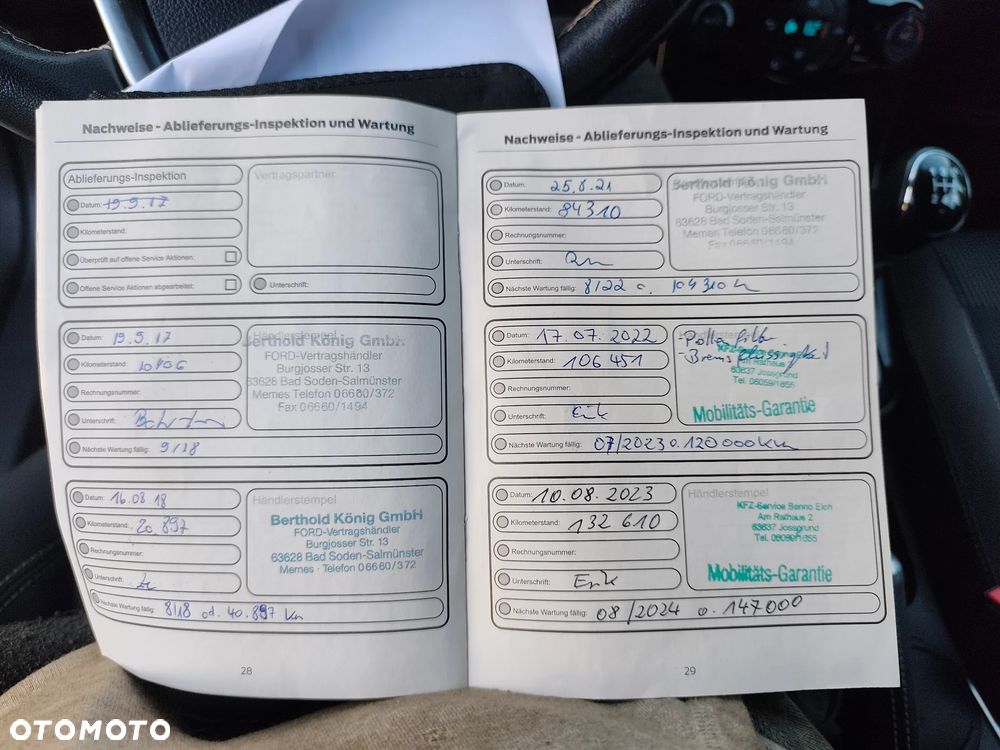 Nachweise - Ablieferungs-Inspektion und Wartung
Ablieferungs-Inspektion
Datum: 19.9.17
Kilometerstand:
Überprüft auf offene Service Aktionen:
Offene Service Aktionen abgearbeitet:
Vertragspartner
Unterschrift:
Datum: 19.9.17
Kilometerstand:
Rechnungsnummer:
Unterschrift:
Nächste Wartung fällig: 9/18
Händlerstempel
Berthold König GmbH
FORD-Vertragshändler
Burgjosser Str. 13
63628 Bad Soden-Salmünster
Mernes Telefon 06660/372
Fax 06660/1494
Datum: 16.08.18
Kilometerstand: 20.897
Rechnungsnummer:
Unterschrift:
Nächste Wartung fällig: 8/18 od. 40.897 km
Händlerstempel
Berthold König GmbH
FORD-Vertragshändler
Burgjosser Str. 13
63628 Bad Soden-Salmünster
Mernes · Telefon 06660/372
28
Nachweise - Ablieferungs-Inspektion und Wartung
Datum: 25.8.21
Kilometerstand: 84310
Rechnungsnummer:
Unterschrift:
Nächste Wartung fällig: 8/22 o. 104310 km
Berthold König GmbH
FORD-Vertragshändler
Burgjosser Str. 13
63628 Bad Soden-Salmünster
Mernes Telefon 06660/372
Fax 06660/1494
Datum: 17.07.2022
Kilometerstand: 106451
Rechnungsnummer:
Unterschrift: Erik
Nächste Wartung fällig: 07/2023 o. 120 000 km
-Pollenfilter
Am Rathaus
63637 Jossgrund
Tel. 06059/1655
Mobilitäts-Garantie
Datum: 10.08.2023
Kilometerstand: 132 610
Rechnungsnummer:
Unterschrift: Erik
Nächste Wartung fällig: 08/2024 o. 147000
Händlerstempel
KFZ-Service Benno Eich
Am Rathaus 2
63637 Jossgrund
Tel. 06059/1655
Mobilitäts-Garantie
29
OTOMOTO